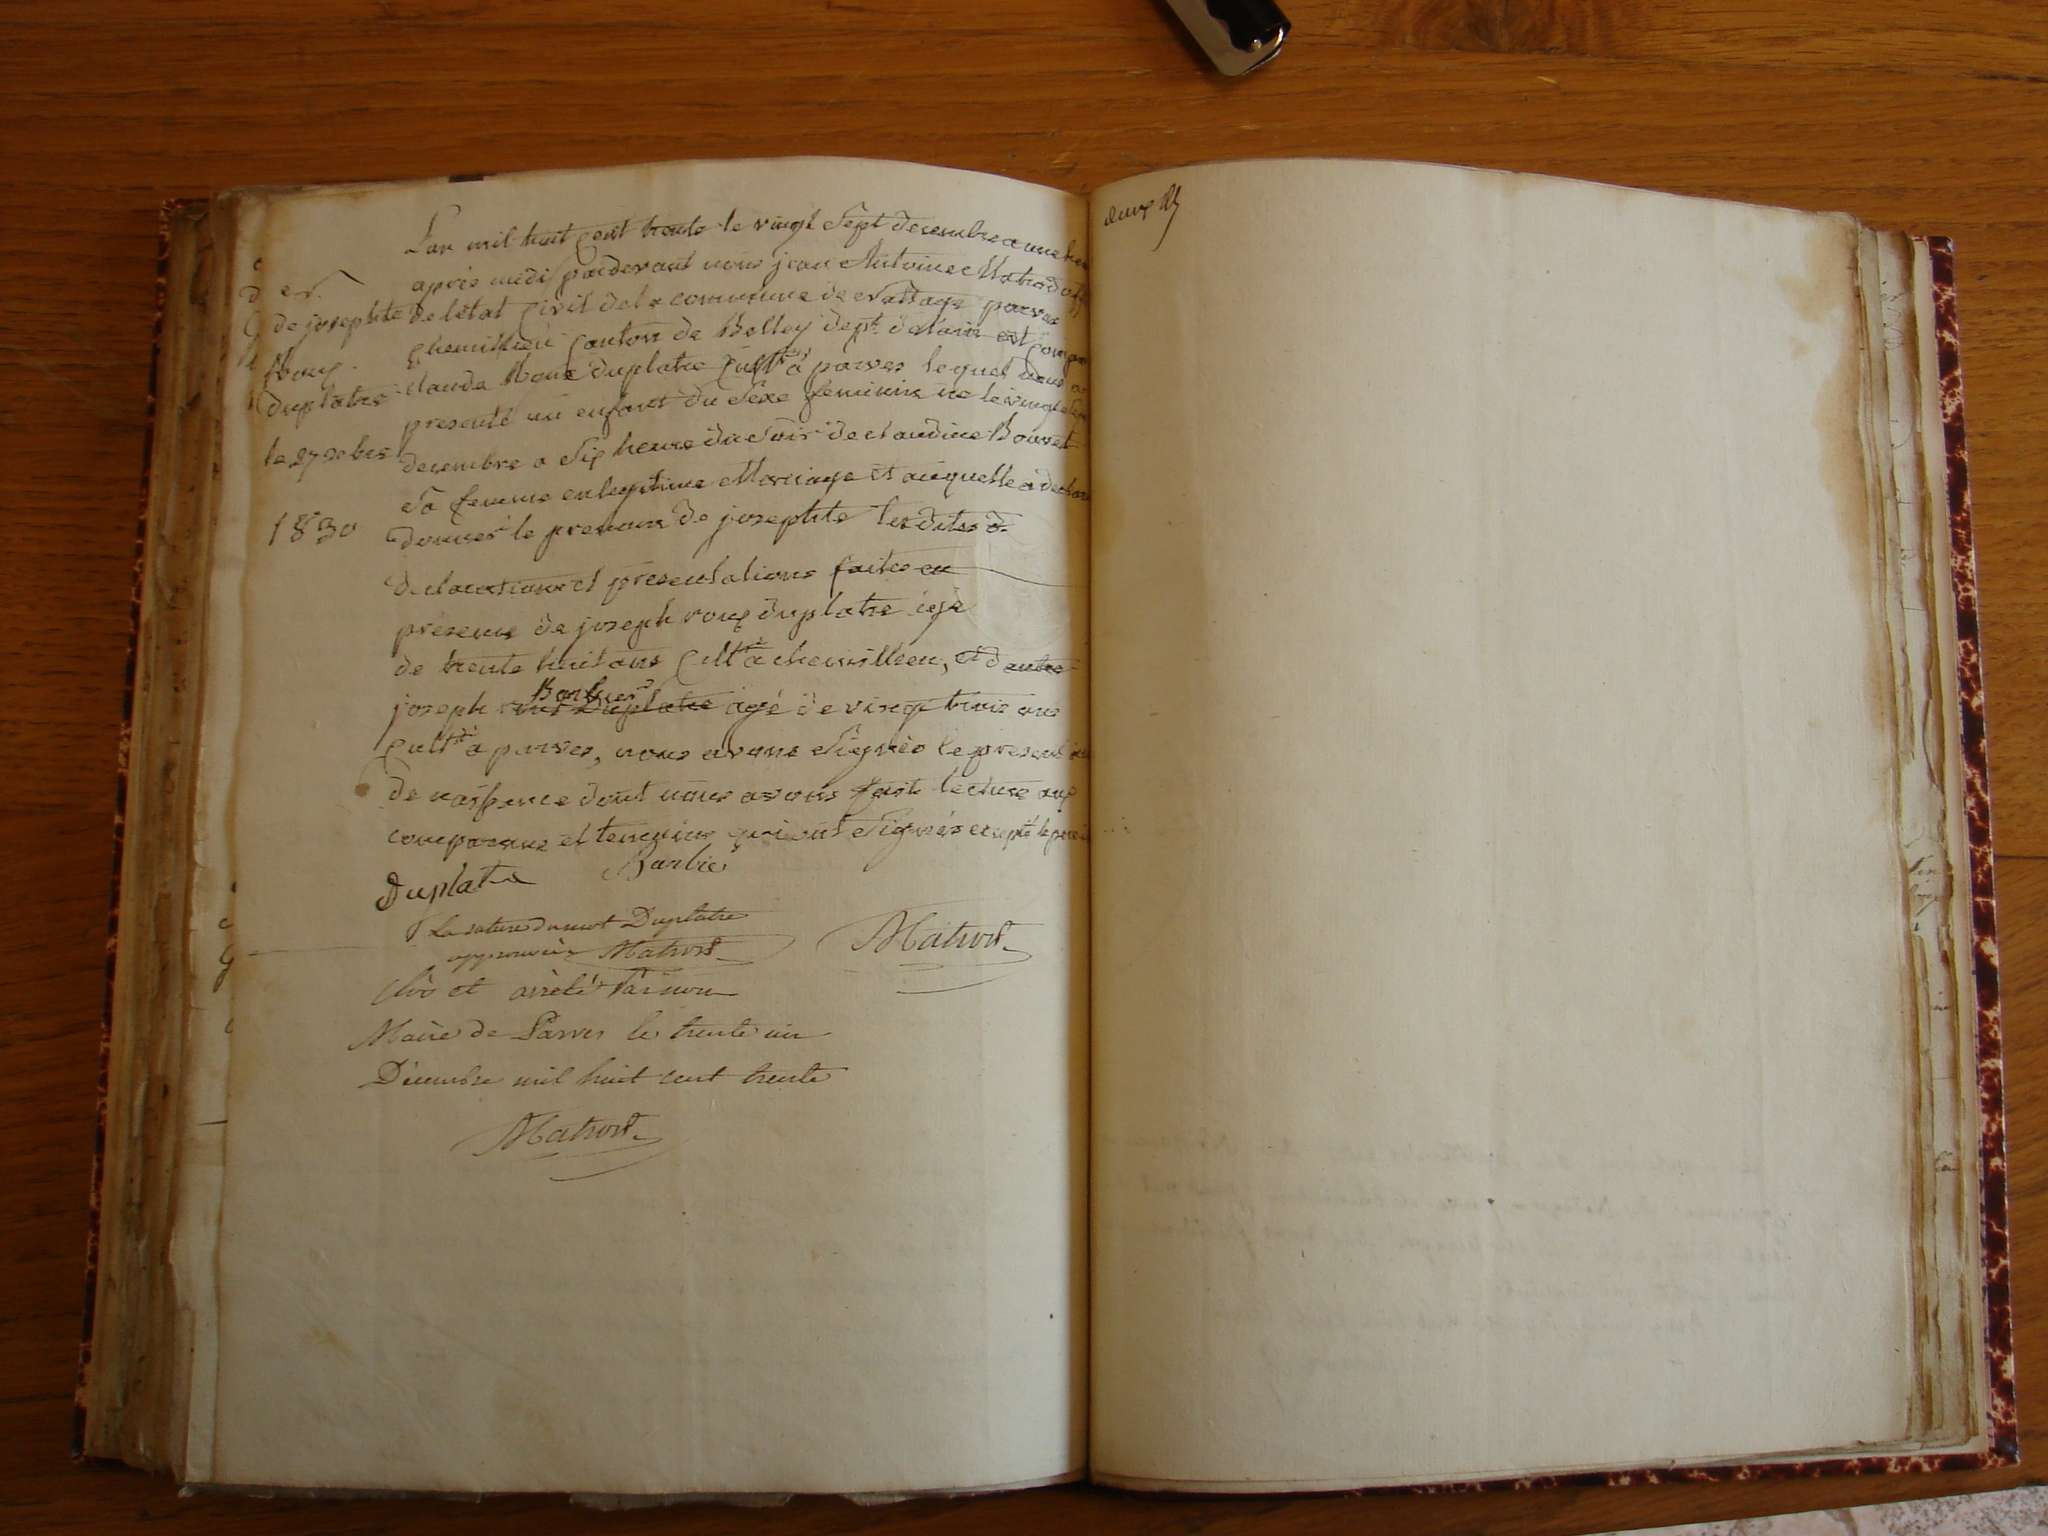 L'an mil huit cent trente le vingt sept decembre a une heu
après midi pardevant nous jean Antoine Matrod off
de l'état civil de la commune de parves
chemillieu canton de Belley dept. de lain est compar
claude Roux duplatre cultr à parves lequel nous a
presenté un enfant du sexe feminin né le vingt sept
decembre a six heure du soir de claudine Bouvet
sa femme en legitime Mariage et auquelle a declaré
donner le prenom de josephte lesdites d.
declarations et presentations faites en
présence de joseph roux duplatre agé
de trente huit ans cultr à chemillieu, et d'autre
joseph Barbier agé de vingt trois ans
cultr à parves, nous avons signés le present
de naissance dont nous avons fait lecture aux
comparant et temoins qui ont signés excepté le pere
Duplatre Barbier
La rature du mot Duplatre
approuvée Matrod
Matrod
Clos et arrêté par nous
Maire de Parves le trente un
Décembre mil huit cent trente
Matrod
de josephte
Roux
duplatre
le 27 xbre
1830